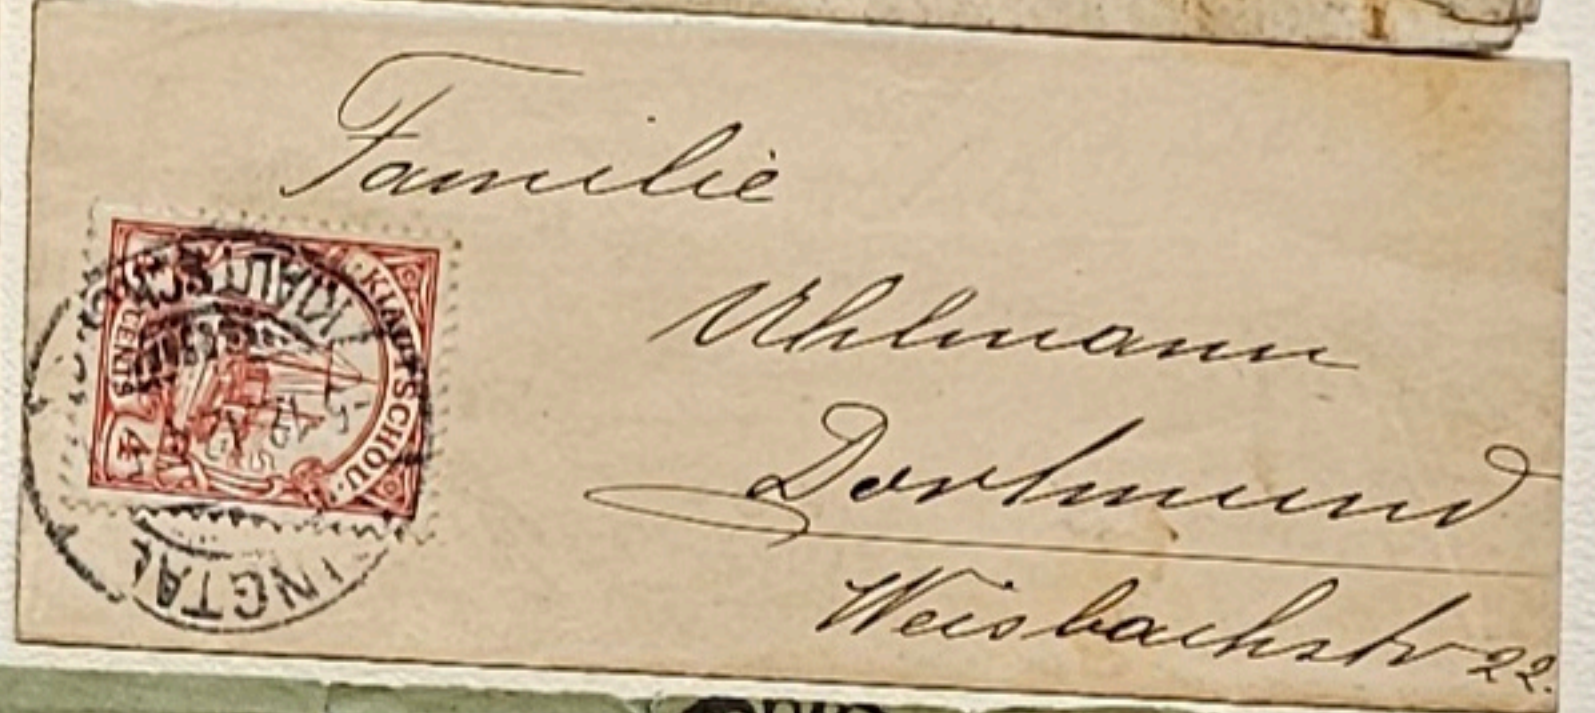 Familie
Uhlmann
Dortmund
Weisbachstr 22.
KIAUTSCHOU
4 CENTS
KIAUTSCHOU